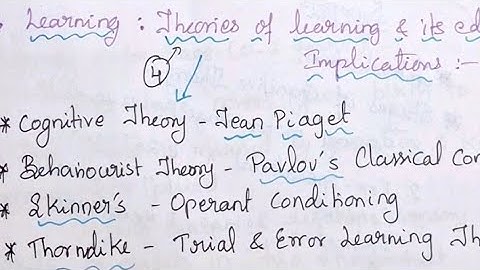 Learning : Theories of learning & its ed
Implications :-
4
* Cognitive Theory - Jean Piaget
* Behaviourist Theory - Pavlov's Classical Con
* Skinner's - Operant Conditioning
* Thorndike - Trial & Error Learning Th